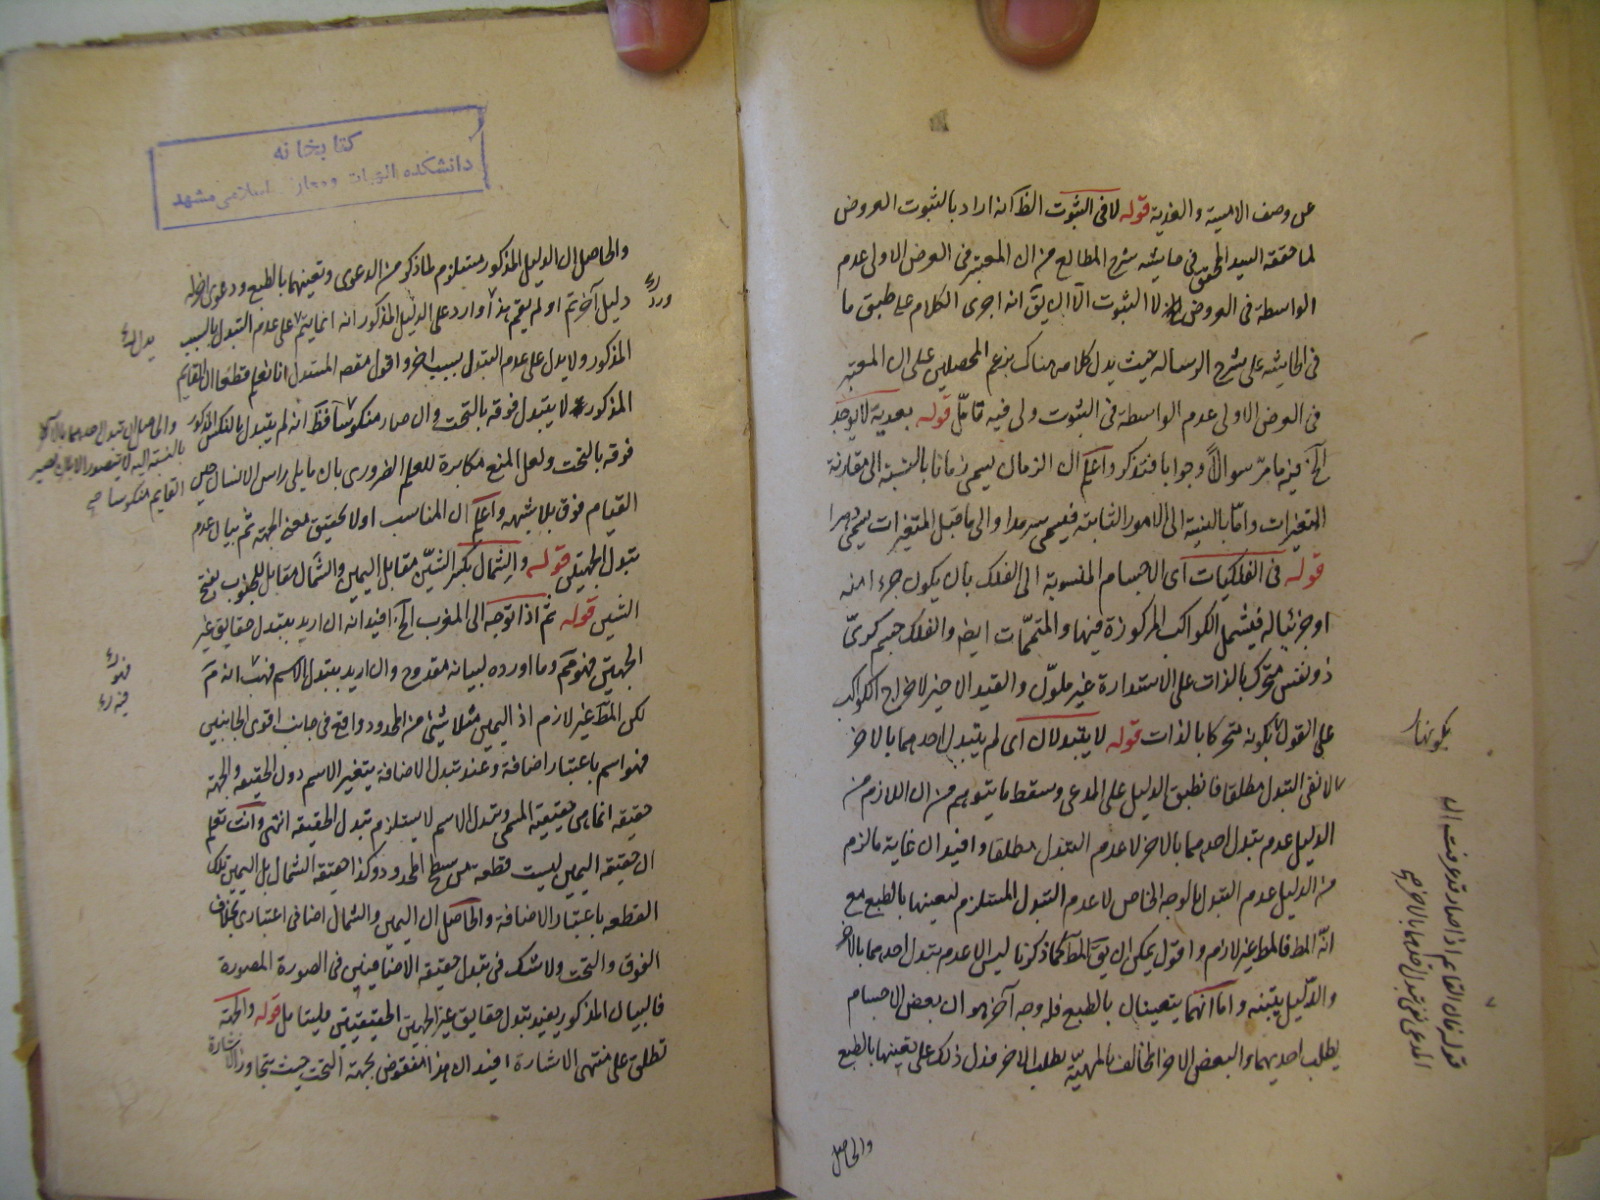 عن وصف الامسية والغدية قوله لا فى الثبوت الظ انه اراد بالثبوت العروض
لما حققه السيد المحقق فى حاشية شرح المطالع من ان المعتبر فى العرض الاولى عدم
الواسطة فى العروض لا الثبوت الا ان يق انه اجرى الكلام على طبق ما
فى الحاشية على شرح الرسالة حيث يدل كلامه هناك بزعم المحصلين على ان المعتبر
فى العرض الاولى عدم الواسطة فى الثبوت ولى فيه تامل قوله بعدية لا يوجد
الخ فيه ما مر سوالا وجوابا فتذكر واعلم ان الزمان يسمى زمانا بالنسبة الى مقارنة
المتغيرات واما بالنسبة الى الامور الثابتة فيسمى سرمدا والى ما قبل المتغيرات يسمى دهرا
قوله فى الفلكيات اى الاجسام المنسوبة الى الفلك بان يكون جزءا منه
او جزئيا له فيشمل الكواكب المركوزة فيها والمتممات ايضا والفلك جسم كرىّ
ذو نفس متحرك بالذات على الاستدارة غير ملوّن والقيد الاخير لاخراج الكواكب
على القول بكونه متحركا بالذات قوله لا يتبدلان اى لم يتبدل احدهما بالاخر
لا نفى التبدل مطلقا فانطبق الدليل على المدعى وسقط ما يتوهم من ان اللازم من
الدليل عدم تبدل احدهما بالاخر لا عدم التبدل مطلقا وافيد ان غاية ما لزم
من الدليل عدم التبدل بالوجه الخاص لا عدم التبدل المستلزم لتعينها بالطبع مع
انّه المط فالمط غير لازم واقول يمكن ان يق المط كما ذكرنا ليس الا عدم تبدل احدهما بالاخر
والدليل يثبته واما انهما يتعينان بالطبع فله وجه آخر هو ان بعض الاجسام
يطلب احديهما والبعض الاخر المخالف بالمهيّة يطلب الاخر فدل ذلك على تعينها بالطبع
والحاصل
بكونها
قوله فان القائم اذا صار قد عرفت ان
المدعى نفى تبدل احدهما بالاخر
كتابخانه
دانشكده الهيات ومعارف اسلامى مشهد
والحاصل ان الدليل المذكور مستلزم لما ذكر من الدعوى وتعينهما بالطبع ودعوى اخرى لها
دليل آخر تم او لم يقم هذا واورد على الدليل المذكور انه انما يتم على عدم التبدل بالسبب
المذكور ولا يدل على عدم التبدل بسبب اخر واقول مقصد المستدل انا نعلم قطعا ان القايم
المذكور لا يتبدل فوقه بالتحت وان صار منكوسا فظ انه لم يتبدل بالنكس المذكور
فوقه بالتحت ولعل المنع مكابرة للعلم الضرورى بان ما يلى راس الانسان حين
القيام فوق بلا شبهه واعلم ان المناسب اولا تحقيق معنى الجهة ثم بيان عدم
تبدل الجهتين قوله والشمال بكسر الشين مقابل اليمين والشمال مقابل للجنوب بفتح
الشين قوله ثم اذا توجه الى المغرب الخ افيد انه ان اريد بتبدل حقايق غير
الجهتين فهو مم وما اورده لبيانه مقدوح وان اريد بتبدل الاسم فهب انه تم
لكن المط غير لازم اذ اليمين مثلا شئ من المحدود واقع فى جانب اقوى الجانبين
فهو اسم باعتبار اضافة وعند تبدل الاضافة يتغير الاسم دون الحقيقه والجهة
حقيقه انما هى حقيقة المسمى وتبدل الاسم لا يستلزم تبدل الحقيقه انتهى وانت تعلم
ان حقيقه اليمين ليست قطعه من سطح المحدود وكذا حقيقه الشمال بل اليمين تلك
القطعه باعتبار الاضافة والحاصل ان اليمين والشمال اضافى اعتبارى بخلاف
الفوق والتحت ولا شك فى تبدل حقيقه الاضافيين فى الصورة المصورة
فالبيان المذكور يفيد تبدل حقايق غير الجهتين الحقيقيتين فليتامل قوله والجهة
تطلق على منتهى الاشارة افيد ان هذا منقوض بجهة التحت حيث يتجاوز الاشارة
والحاصل ان تبدل احدهما بالاخر
بالنسبة اليه لا يتصور الا بان يصير
القايم منكوسا